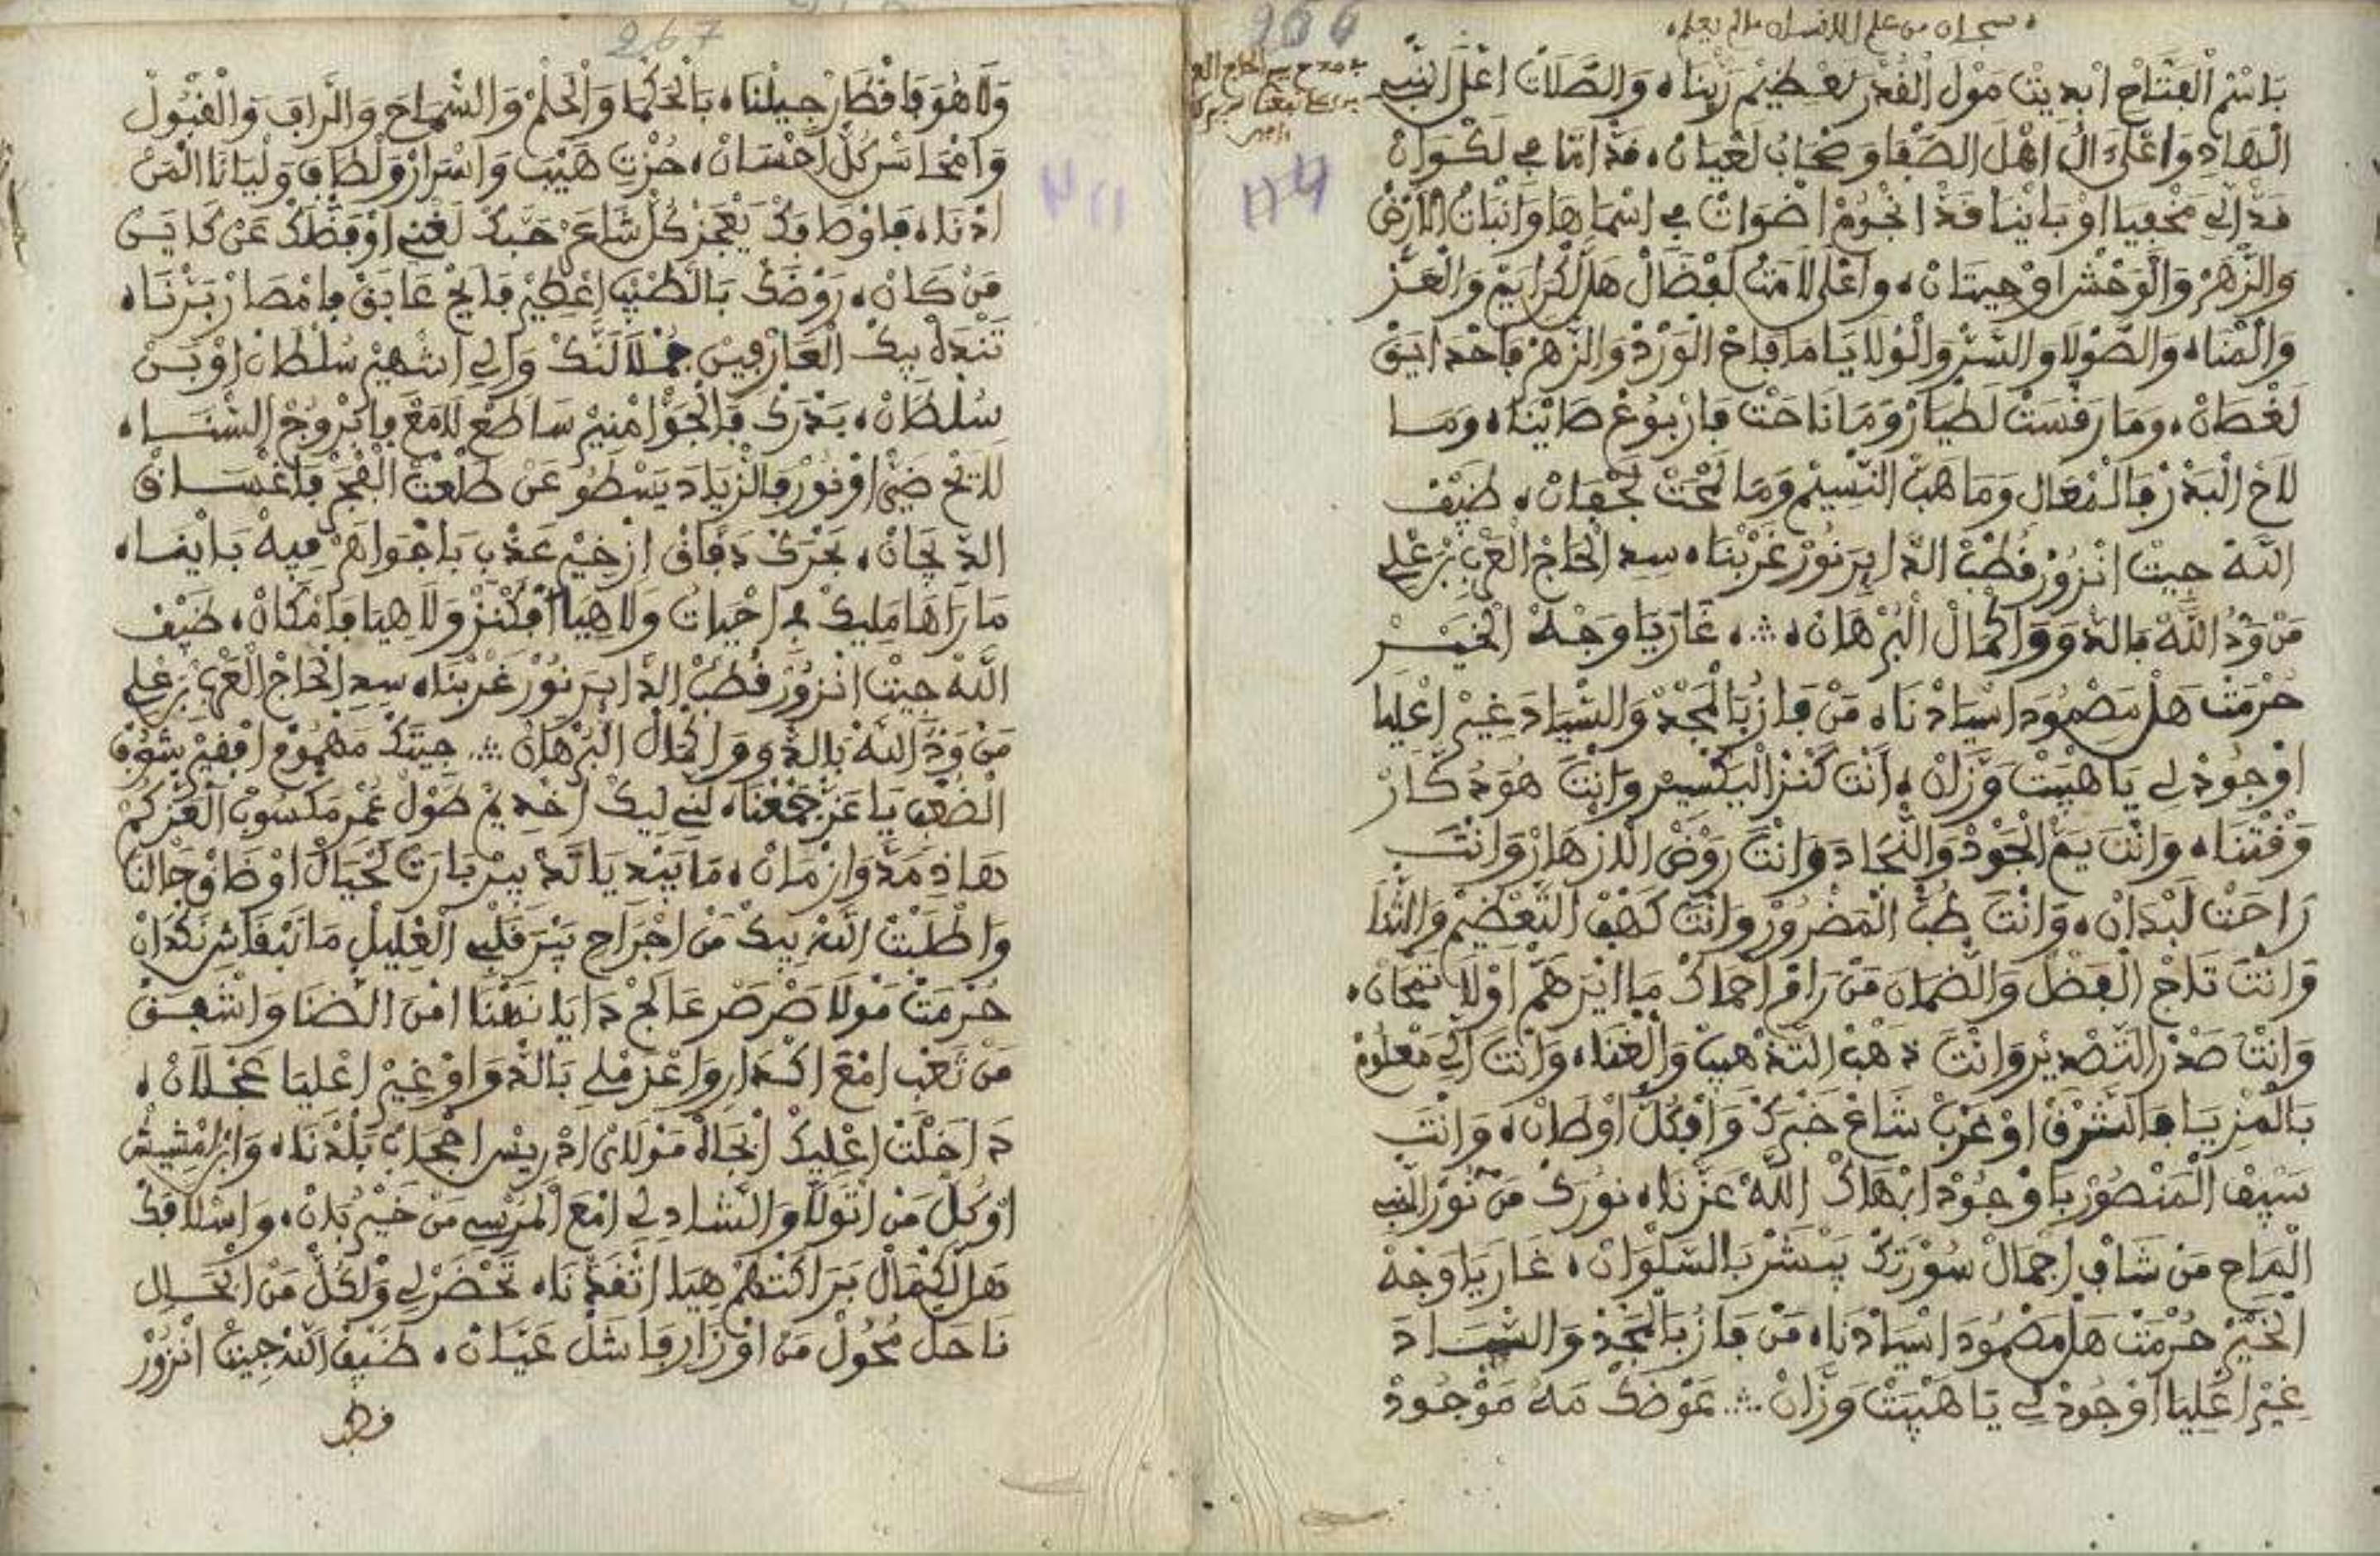 سبحان من علم الانسان مالم يعلم
966
بَاسْمْ الْفَتَّاحْ ابْدِيتْ مُولْ الْقُدْرَ لَعْظِيمْ رَبْنَا، وَالصَّلَاتْ اعْلَى النَّبِي
الْهَادِ وَاعْلَى الْ اهْلَ الصَّفَا وَصْحَابُ لَعْيَانْ، فَدْ امَّا فِي لَكْوَانْ
فَدْ الِي مَخْفِيَا اوْ بَايْنَا فَدْ انْجُومْ اضْوَاتْ فِي اسْمَاهَا وَانْبَاتْ الَارْضْ
وَالزَّهْرْ وَالْوَحْشْ اوْ حِيتَانْ، وَاعْلَى لَامَتُ لَفْضَالْ هَلْ لَكْرَايَمْ وَالْعَزْ
وَالْهْنَا، وَالصُّولَا وَالسَّرْ وَالْوْلَايَا مَا فَاحْ الْوَرْدْ وَالزَّهْرْ فَاحْدَايَقْ
لَغْصَانْ، وَمَا رَقْسَتْ لَطْيَارْ وَمَا نَاحَتْ فَارْبُوعْ صَايْنَا، وَمَا
لَاحْ الْبَدْرْ وَمَا هَبْ النّْسِيمْ وَمَا لَجْفَانْ، ضَيْفْ
اللَّهْ جِيتْ انْزُورْ قُطْبْ الدَّايِرَ نُورْ غَرْبْنَا، سِدِ الْحَاجْ الْعَرْبِي بَرْ عْلِي
مَنْ وَدُّ اللَّهْ بَالدَّوَ وَاكْمَالْ الْبُرْهَانْ ؞ غَارَ يَا وَجْهْ الْخَيْرْ
حُرْمَتْ هَلْ مَصْمُودَ اسْيَادْنَا، مَنْ فَازُ بَالْمَجْدْ وَالسّْيَادَ غِيرْ اعْلِيَا
اوْجُودْ لِي يَا هَيْبَتْ وَزَّانْ، انْتَ كَنْزْ الْيَكْسِيرْ وَانْتَ هُوَ دُكَّارْ
وَقْتْنَا، وَانْتَ يَمْ الْجُودْ وَالنّْجَادَ وَانْتَ رَوْضْ الَازْهَارْ وَانْتَ
رَاحَتْ لَبْدَانْ، وَانْتَ طُبْ الْمَضْرُورْ وَانْتَ كَهْفْ التَّعْظِيمْ وَالثَّنَا
وَانْتَ تَاجْ الْفَضْلْ وَالضّْمَانَ مَنْ رَامْ احْمَاكْ مَا ايْرَ هَمْ اوْلَا تَمْحَانْ،
وَانْتَ صَدْرْ التَّصْدِيرْ وَانْتَ دْهَبْ التَّدْهِيبْ وَالْغْنَا، وَانْتَ الِي مَعْلُومْ
بَالْمْزِيَا فَالشَّرْقْ اوْ غَرْبْ شَاعْ خَبْرَكْ وَافْكُلّْ اوْطَانْ، وَانْتَ
سَيْفْ الْمَنْصُورْ بَاوْجُودْ ابْهَاكْ اللَّهْ عَزْنَا، نُورَكْ مَنْ نُورْ النّْبِي
الْمَاحِ مَنْ شَافْ اجْمَالْ سُورْتَكْ يَبْشَرْ بَالسَّلْوَانْ، غَارَ يَا وَجْهْ
الْخَيْرْ حُرْمَتْ هَلْ مَصْمُودَ اسْيَادْنَا، مَنْ فَازُ بَالْمَجْدْ وَالسّْيَادَ
غِيرْ اعْلِيَا اوْجُودْ لِي يَا هَيْبَتْ وَزَّانْ ؞ عَوْضَكْ مَهْ مَوْجُودْ
967
وَلَا هُوَ فَاقْطَارْ جِيلْنَا، بَالْحَكْمَا وَالْحَلْمْ وَالسّْمَاحَ وَالرَّافَ وَالْقْبُولْ
وَامْحَاسَنْ كُلّْ احْسَانْ، حُزْتِ هَيْبَ وَاسْرَارْ وَلْطَافَ وَلْيَانَا الْمَنْ
ادْنَا، فَاوْصَافَكْ يَعْجَزْ كُلّْ شَاعَرْ حَبَّكْ لَغْنِي اوْفَضْلَكْ عَنْ كَايَنْ
مَنْ كَانْ، رَوْضَكْ بَالطّْيَبْ اعْطِيرْ فَايَحْ عَابَقْ فَامْصَارْ بَرْنَا،
تَنْدَهْ بِيكْ الْعَارْفِينْ جُمْلَا لَنَّكْ وَالِي اشْهِيرْ سُلْطَانْ اوْ بَنْ
سُلْطَانْ، بَدْرَكْ فَالْجَوّْ امْنِيرْ سَاطَعْ لَامَعْ فَابْرُوجْ السّْنَا،
لَايَحْ ضَيّْ اوْ نُورْ فَالزّْيَادَ يَسْطُو عَنْ طَلْعَتْ الْفْجَرْ فَاغْسَاقْ
الدّْجَانْ، بَحْرَكْ دَفَّاقْ ازْخِيرْ عَذْبِ بَاجْوَاهَرْ فِيهْ بَايْنَا،
مَا رَاهَا مَلِيكْ فِي احْيَاتُ وَلَا هِيَا افْكَنْزْ وَلَا هِيَا فَامْكَانْ، ضَيْفْ
اللَّهْ جِيتْ انْزُورْ قُطْبْ الدَّايِرَ نُورْ غَرْبْنَا، سِدِ الْحَاجْ الْعَرْبِي بَرْ عْلِي
مَنْ وَدُّ اللَّهْ بَالدَّوَ وَاكْمَالْ الْبُرْهَانْ ؞ جِيتَكْ مَهْمُومْ افْقِيرْ بَشُّوفْ
الضُّعْفِ يَا عَزْ جَمْعْنَا، لَنِّي لِيكْ اخْدِيمْ طُولْ عُمْرِ مَكْسُوبْ الْعَزْكُمْ
هَاذِ مَدَّ وَازْمَانْ، مَا بِيَدِي يَا لَدْ بِيرْ بَارَتْ لَحْيَالْ اوْضَاقْ حَالْنَا
وَاطْلَبْتْ اللَّهْ بِيكْ مَنْ اجْرَاحِ يَبْرَ قَلْبِي الْعْلِيلْ مَا تَبْقَاشْ نَكْدَانْ
حُرْمَتْ مُولَا صَرْصَرْ عَالَجْ دَايَا نَهْنَا امْنَ الضّْنَا وَاشْفِقْ
مَنْ تَعْبِ امْعَ اكْدَارِ وَاعْزَمْ لِي بَالدّْوَا اوْ غِيرْ اعْلِيَا عَجْلَانْ،
دَاخَلْتْ اعْلِيكْ ابْجَاهْ مُولَايْ ادْرِيسْ احْجَابْ بَلْدْنَا، وَابَنْ امْشِيشْ
اوْكُلّْ مَنْ اتْوَلَّا وَالشَّادِلِي امْعَ الْمَرْسِي مَنْ خَيْرُ بَانْ، وَاسْلَافَكْ
هَلْ لَكْمَالْ بَرَاكَتْهُمْ هِيَا اتْنَقَدْنَا، تَحْضَرْ لِي وَلْكُلّْ مَنْ انْحَلِ
نَاحَلْ مَحُولْ مَنْ اوْزَارِ فَاشَلْ عَيَّانْ، ضَيْفْ اللَّهْ جِيتْ انْزُورْ
قطب